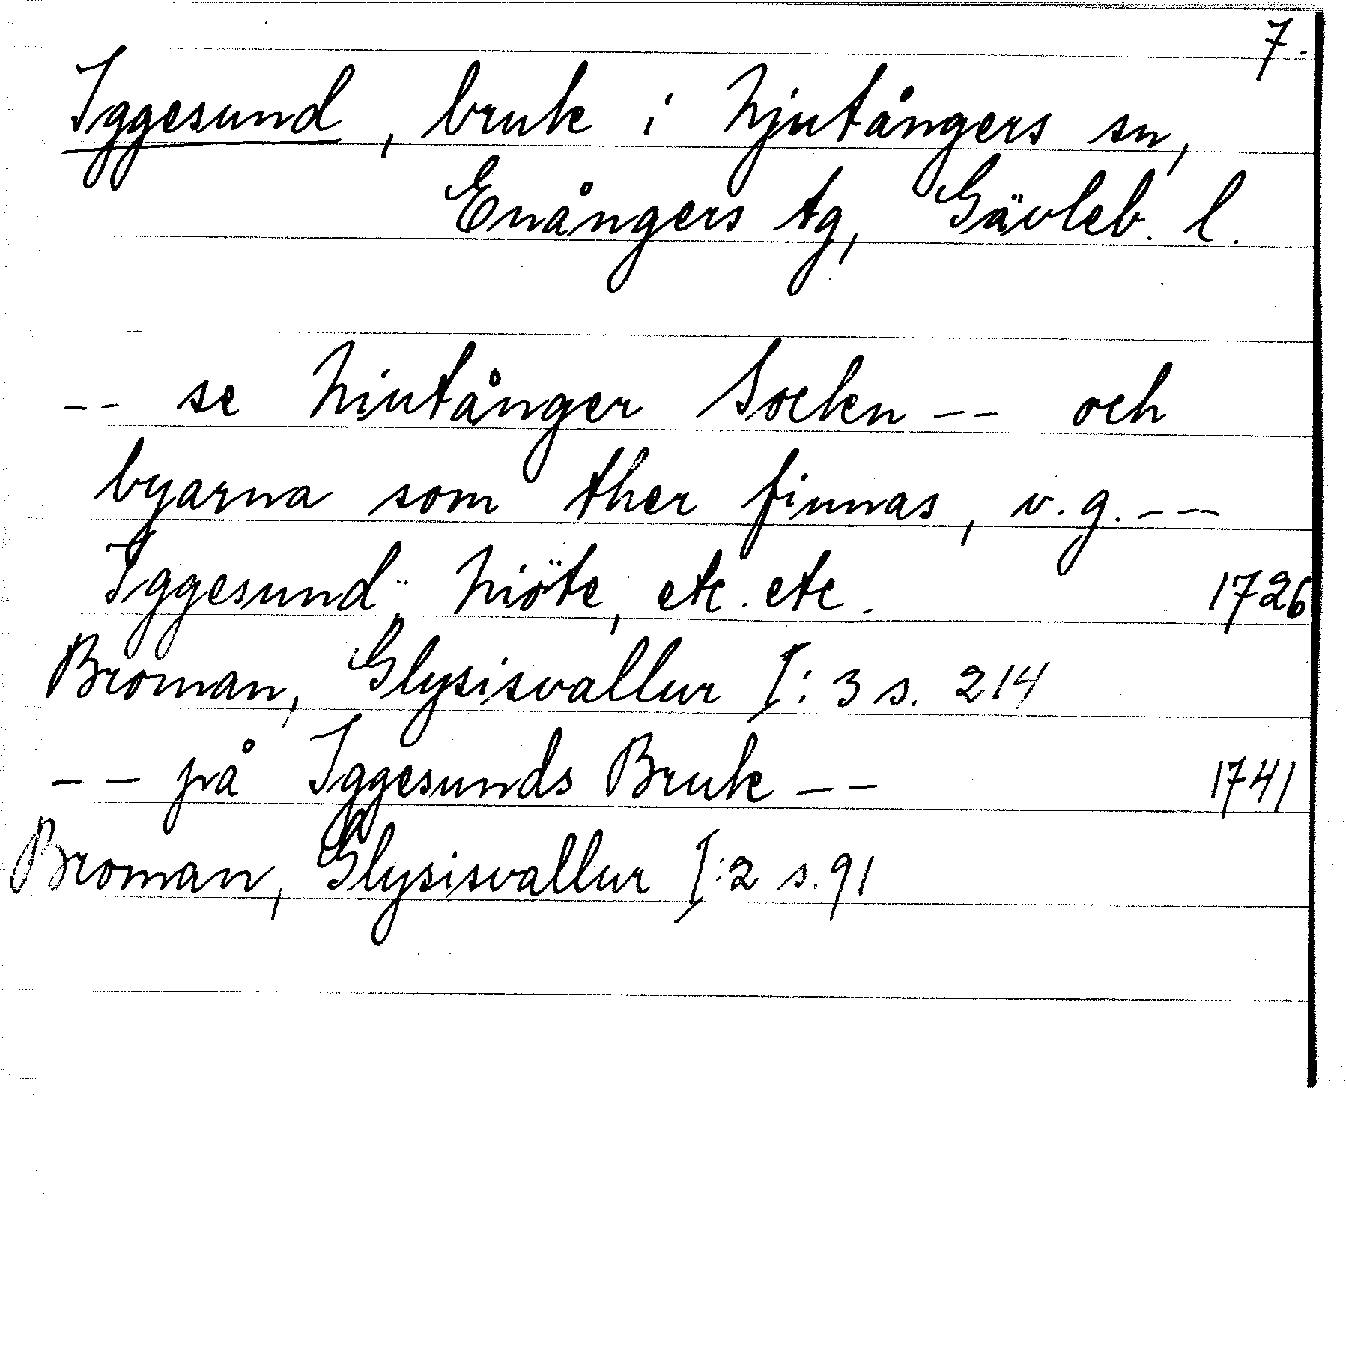 7.
Iggesund, bruk i Njutångers sn,
Enångers tg, Gävleb. l.
-- se Niutånger Socken -- och
byarna som ther finnas, v.g. --
Iggesund, Niöte, etc. etc. 1726
Broman, Glysisvallur I:3 s. 214
-- på Iggesunds Bruk -- 1741
Broman, Glysisvallur I:2 s. 91